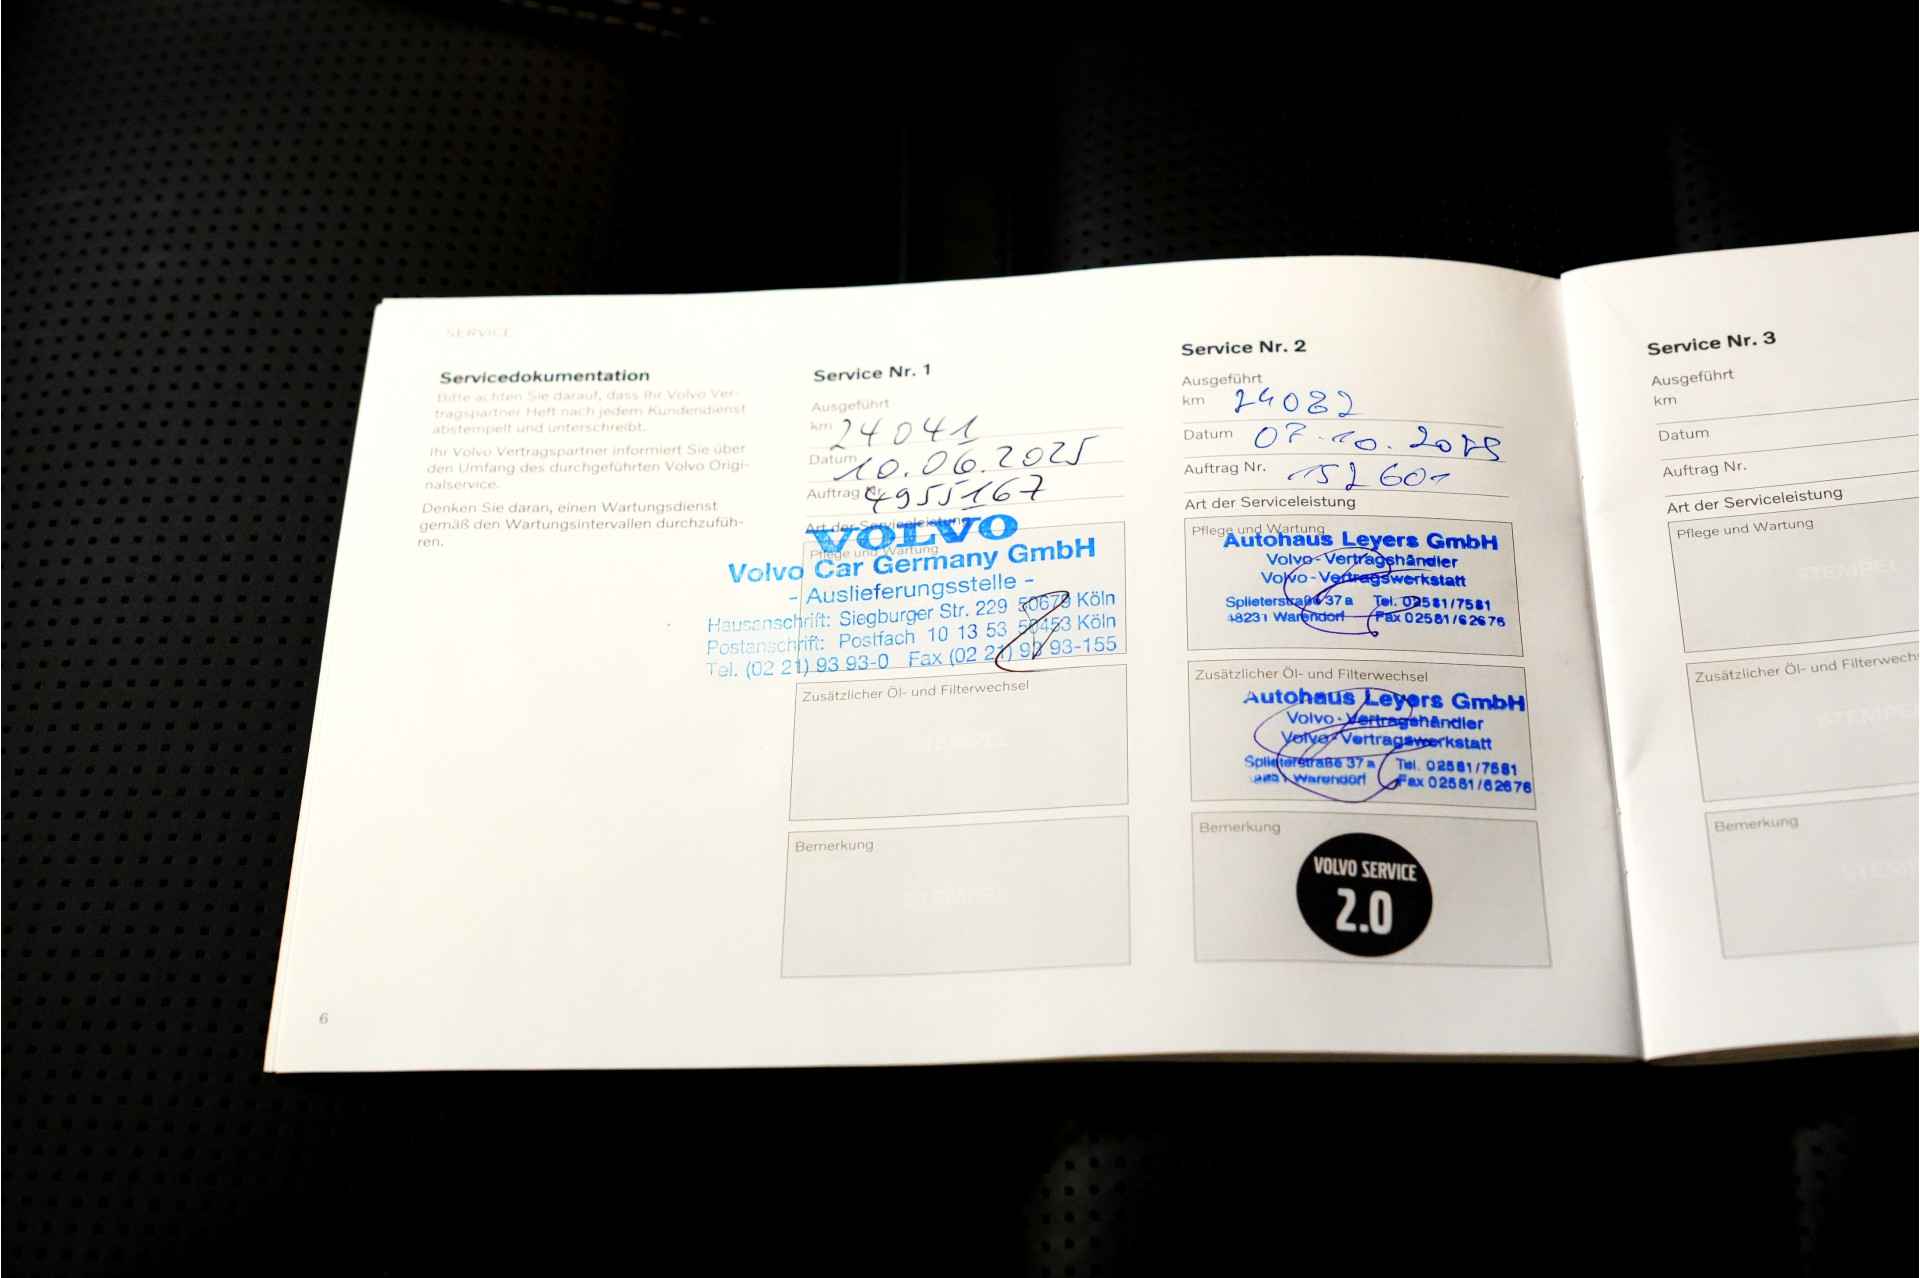 SERVICE
Servicedokumentation
Bitte achten Sie darauf, dass Ihr Volvo Ver-
tragspartner Heft nach jedem Kundendienst
abstempelt und unterschreibt.
Ihr Volvo Vertragspartner informiert Sie über
den Umfang des durchgeführten Volvo Origi-
nalservice.
Denken Sie daran, einen Wartungsdienst
gemäß den Wartungsintervallen durchzufüh-
ren.
6
Service Nr. 1
Ausgeführt
km 24041
Datum 10.06.2025
Auftrag Nr. 4955167
Art der Serviceleistung
Pflege und Wartung
VOLVO
Volvo Car Germany GmbH
- Auslieferungsstelle -
Hausanschrift: Siegburger Str. 229 50679 Köln
Postanschrift: Postfach 10 13 53 50453 Köln
Tel. (02 21) 93 93-0 Fax (02 21) 93 93-155
Zusätzlicher Öl- und Filterwechsel
STEMPEL
Bemerkung
STEMPEL
Service Nr. 2
Ausgeführt
km 24082
Datum 07.10.2025
Auftrag Nr. 152601
Art der Serviceleistung
Pflege und Wartung
Autohaus Leyers GmbH
Volvo-Vertragshändler
Volvo-Vertragswerkstatt
Splieterstraße 37a Tel. 02581/7581
48231 Warendorf Fax 02581/62676
Zusätzlicher Öl- und Filterwechsel
Autohaus Leyers GmbH
Volvo-Vertragshändler
Volvo-Vertragswerkstatt
Splieterstraße 37a Tel. 02581/7581
Warendorf Fax 02581/62676
Bemerkung
VOLVO SERVICE
2.0
Service Nr. 3
Ausgeführt
km
Datum
Auftrag Nr.
Art der Serviceleistung
Pflege und Wartung
STEMPEL
Zusätzlicher Öl- und Filterwechs
STEMPE
Bemerkung
STEMP